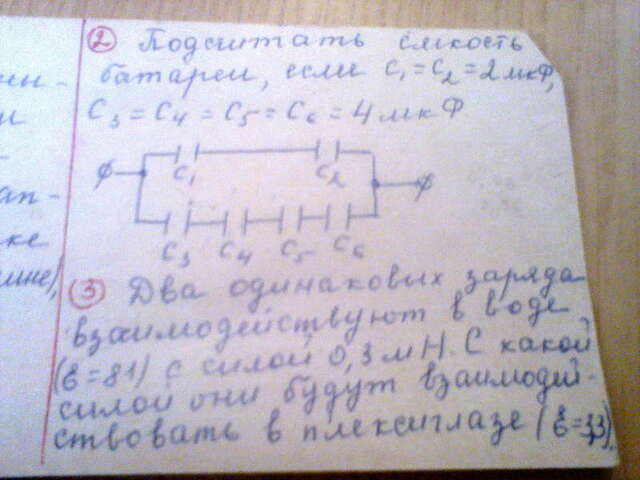 ② Подсчитать ёмкость
батареи, если C₁=C₂=2мкФ,
C₃=C₄=C₅=C₆=4мкФ
C₁ C₂
C₃ C₄ C₅ C₆
③ Два одинаковых заряда
взаимодействуют в воде
(ε=81) с силой 0,3мН. С какой
силой они будут взаимодей-
ствовать в плексиглазе (ε=3,3)